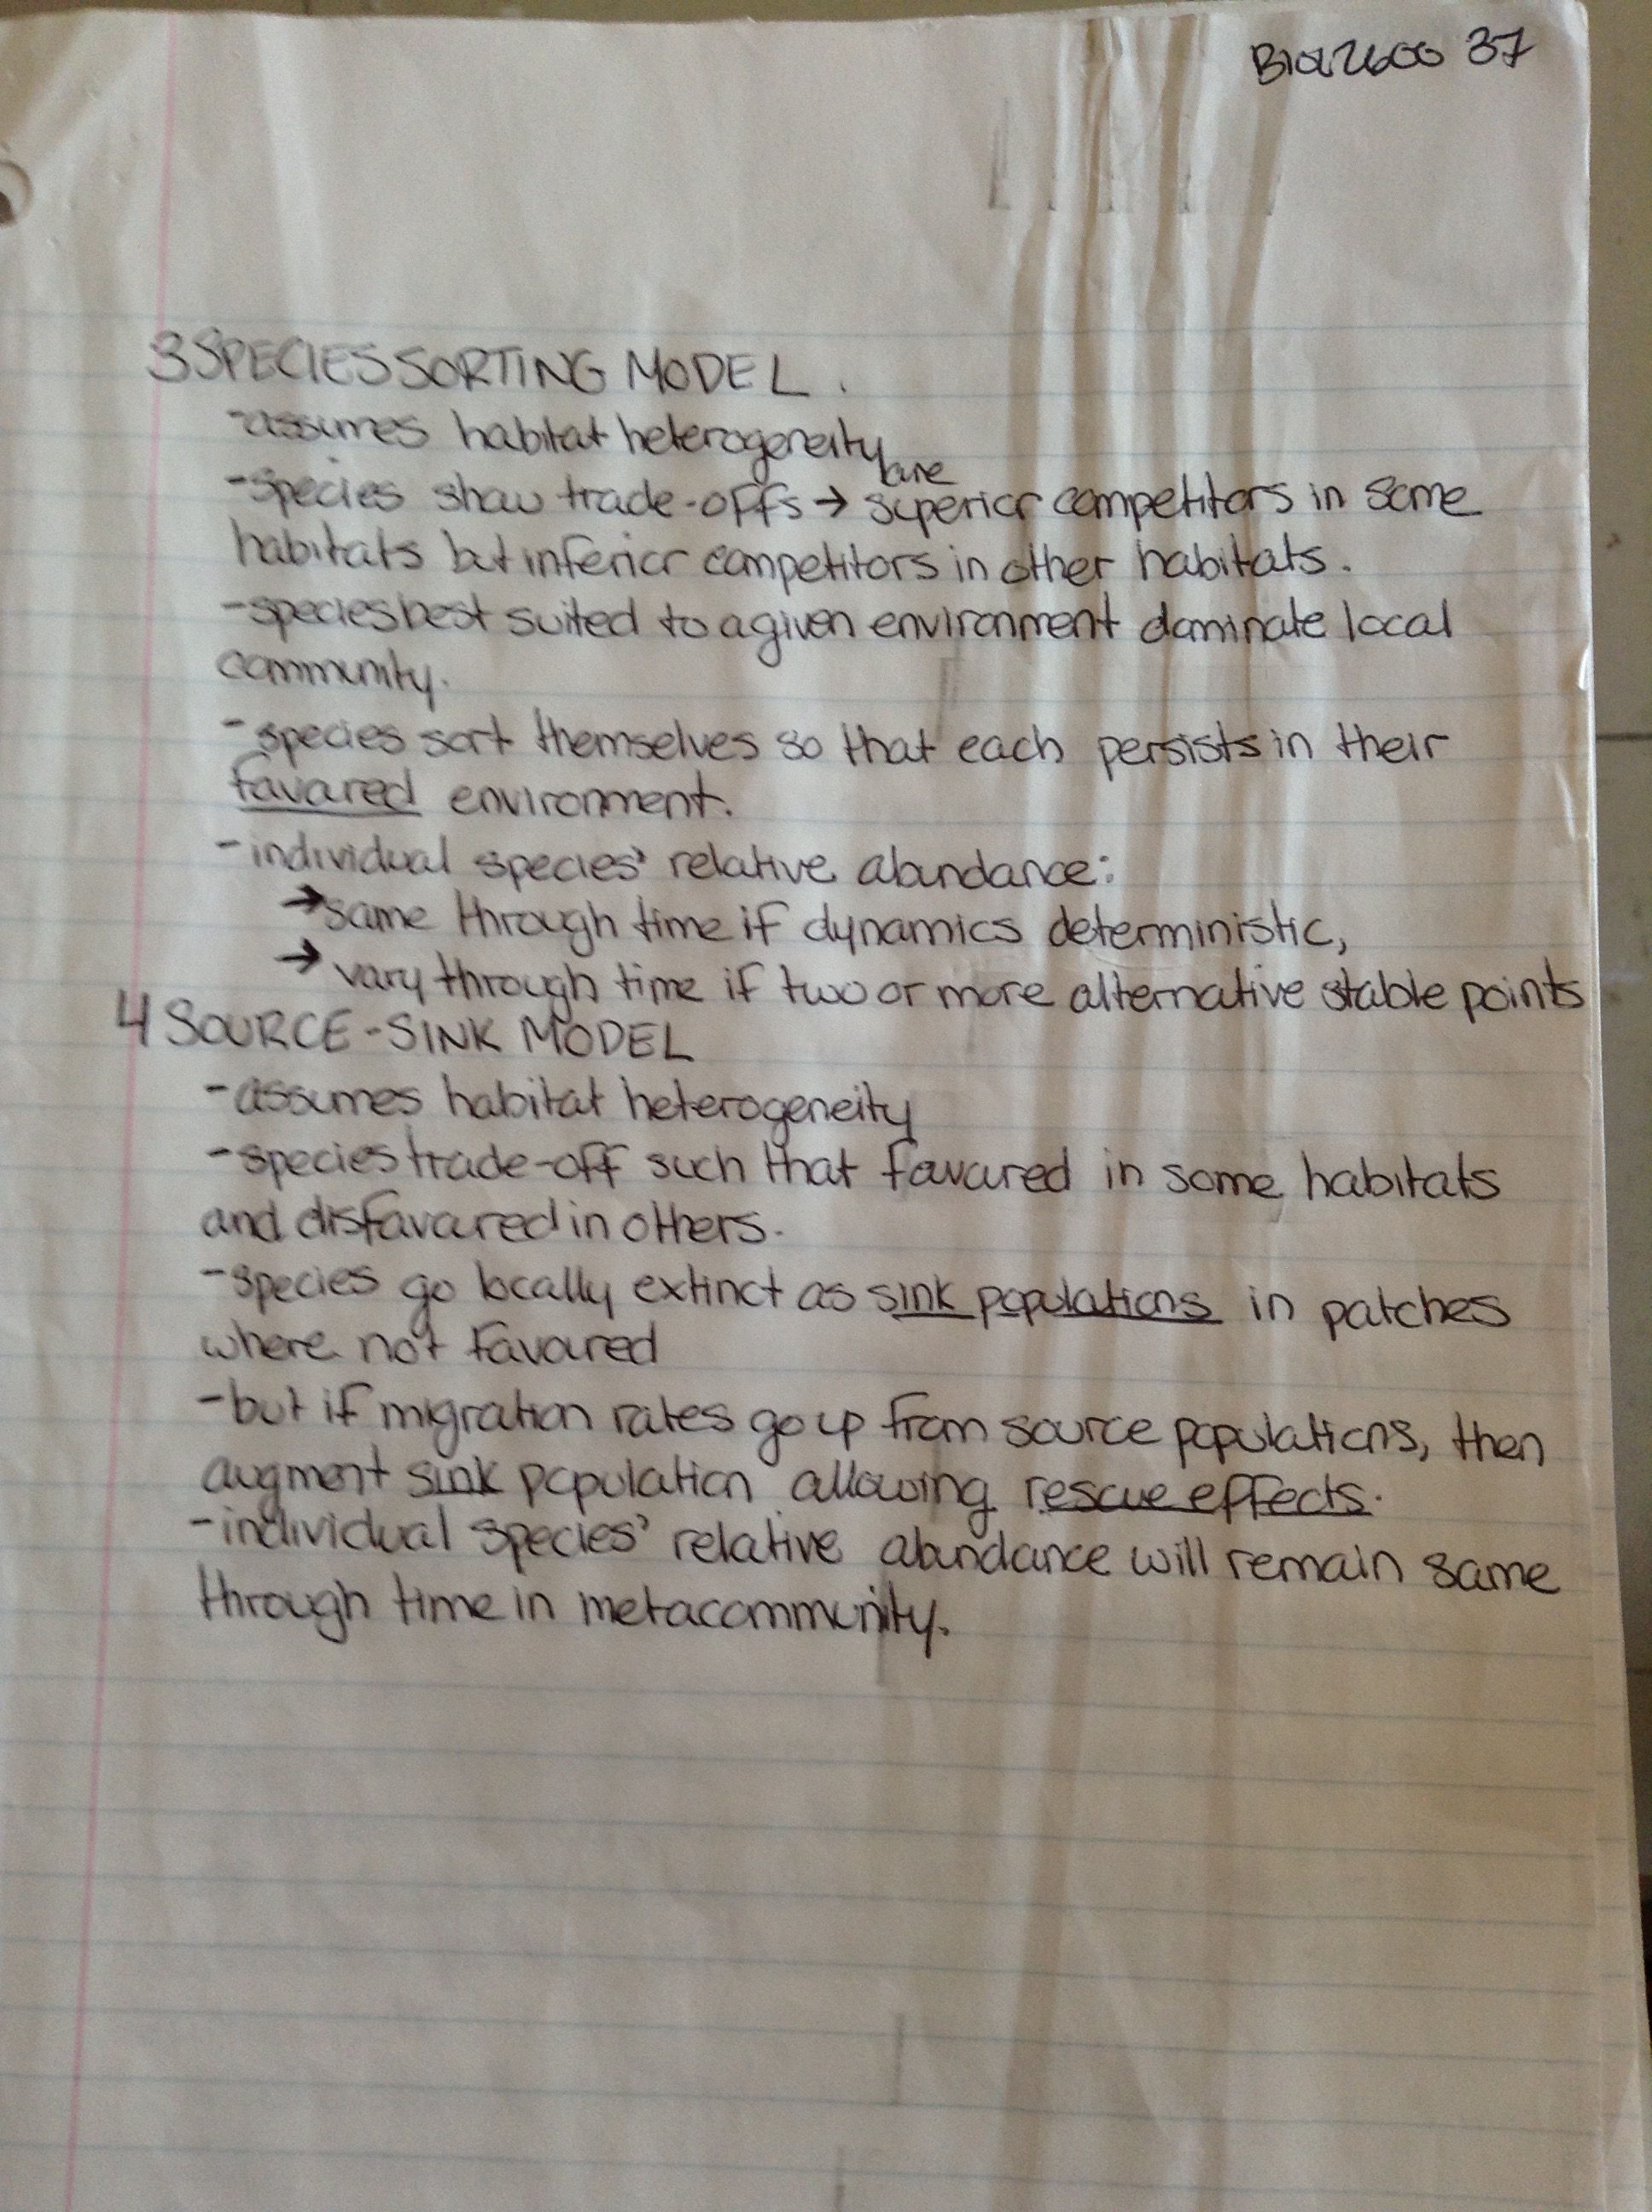 Biol2600 37
3 SPECIES SORTING MODEL.
-assumes habitat heterogeneity
are
-species show trade-offs → superior competitors in some
habitats but inferior competitors in other habitats.
-species best suited to a given environment dominate local
community.
-species sort themselves so that each persists in their
favoured environment.
-individual species' relative abundance:
→same through time if dynamics deterministic,
→ vary through time if two or more alternative stable points
4 SOURCE-SINK MODEL
-assumes habitat heterogeneity
-species trade-off such that favoured in some habitats
and disfavoured in others.
-species go locally extinct as sink populations in patches
where not favoured
-but if migration rates go up from source populations, then
augment sink population allowing rescue effects.
-individual species' relative abundance will remain same
through time in metacommunity.